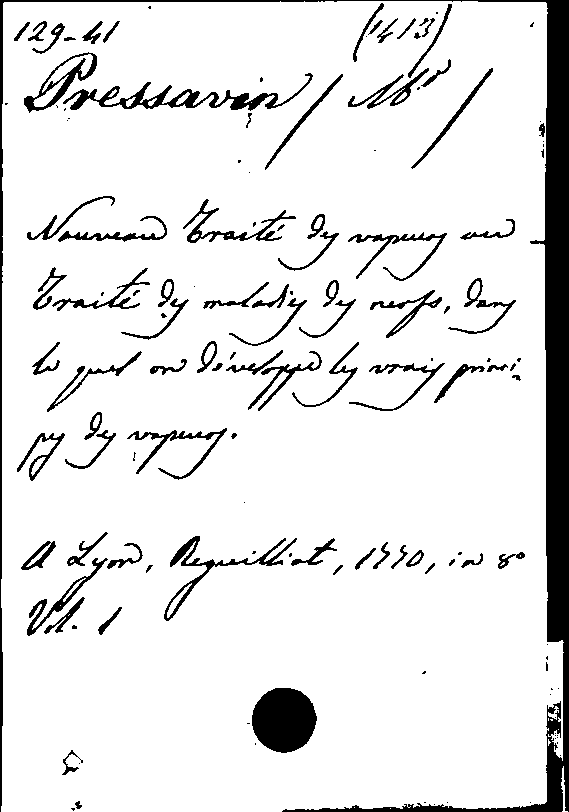 129-41 (1413)
Pressavin / Mr /
Nouveau Traité des vapeurs ou
Traité des maladies des nerfs, dans
le quel on développe les vrais princi-
pes des vapeurs.
A Lyon, Reguilliat, 1770, in 8º
Vol. 1